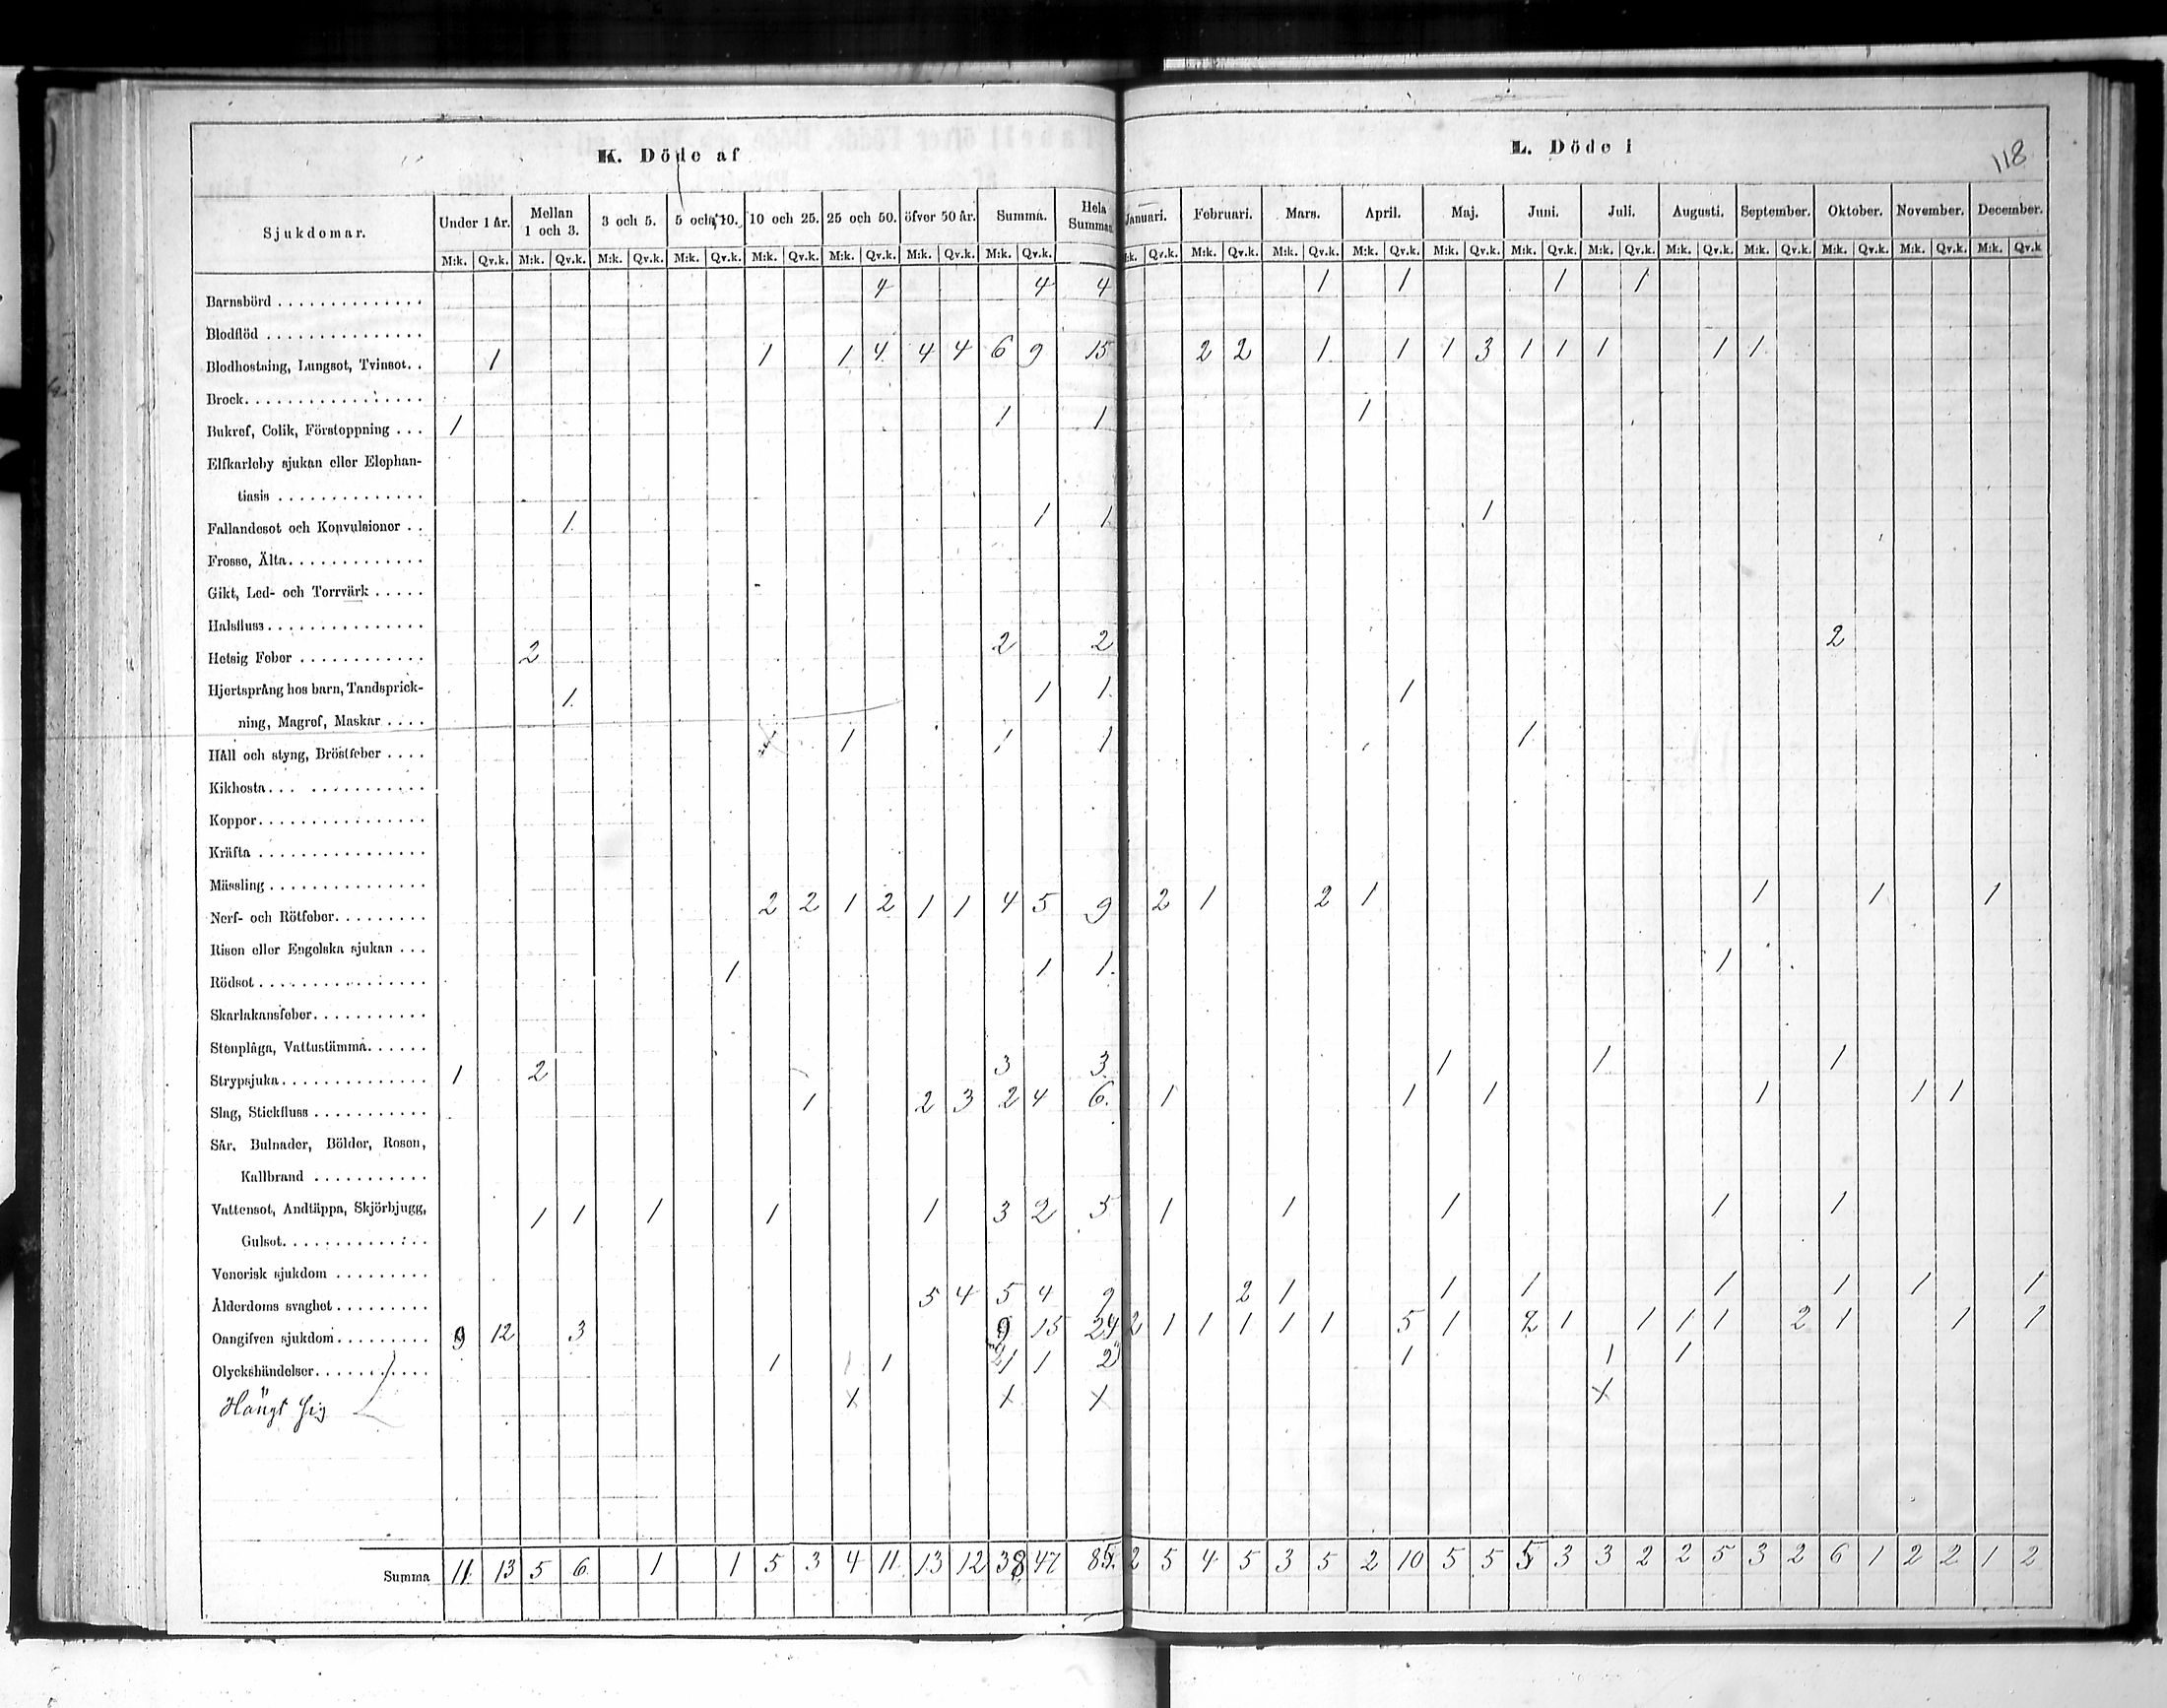 K. Döde af
L. Döde i
118
Sjukdomar. Under 1 år. Mellan 1 och 3. 3 och 5. 5 och 10. 10 och 25. 25 och 50. öfver 50 år. Summa. Hela Summan. Januari. Februari. Mars. April. Maj. Juni. Juli. Augusti. September. Oktober. November. December.
M:k. Qv.k. M:k. Qv.k. M:k. Qv.k. M:k. Qv.k. M:k. Qv.k. M:k. Qv.k. M:k. Qv.k. M:k. Qv.k. M:k. Qv.k. M:k. Qv.k. M:k. Qv.k. M:k. Qv.k. M:k. Qv.k. M:k. Qv.k. M:k. Qv.k. M:k. Qv.k. M:k. Qv.k. M:k. Qv.k. M:k. Qv.k. M:k. Qv.k
Barnsbörd 4 4 4 1 1 1 1
Blodflöd
Blodhostning, Lungsot, Tvinsot. 1 1 1 4 4 4 6 9 15 2 2 1 1 1 3 1 1 1 1 1
Brock
Bukref, Colik, Förstoppning 1 1 1 1
Elfkarleby sjukan eller Elephan-
tiasis
Fallandesot och Konvulsioner 1 1 1 1
Frosso, Älta
Gikt, Led- och Torrvärk
Halsfluss
Hetsig Feber 2 2 2 2
Hjertsprång hos barn, Tandsprick- 1 1 1 1
ning, Magref, Maskar
Håll och styng, Bröstfeber 1 1 1 1
Kikhosta
Koppor
Kräfta
Mässling
Nerf- och Rötfeber 2 2 1 2 1 1 4 5 9 2 1 2 1 1 1 1
Risen eller Engelska sjukan
Rödsot 1 1 1 1
Skarlakansfeber
Stenplåga, Vattustämma
Strypsjuka 1 2 3 3 1 1 1
Slag, Stickfluss 1 2 3 2 4 6 1 1 1 1 1 1
Sår, Bulnader, Bölder, Rosen,
Kallbrand
Vattensot, Andtäppa, Skjörbjugg, 1 1 1 1 1 3 2 5 1 1 1 1 1
Gulsot
Venerisk sjukdom
Ålderdoms svaghet 5 4 5 4 9 2 1 1 1 1 1 1 1
Oangifven sjukdom 9 12 3 9 15 24 2 1 1 1 1 1 5 1 2 1 1 1 1 2 1 1 1
Olyckshändelser 1 1 1 1 2 1 1 1
Hängt sig
Summa 11 13 5 6 1 1 5 3 4 11 13 12 38 47 85 2 5 4 5 3 5 2 10 5 5 5 3 3 2 2 5 3 2 6 1 2 2 1 2